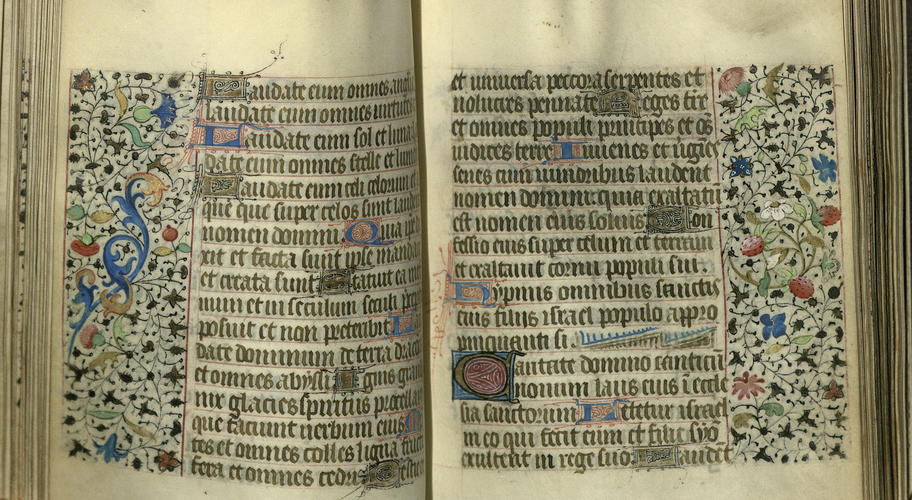 Laudate eum omnes
laudate eum omnes
Laudate eum sol et luna
date eum omnes stelle et lum
Laudate eum celi celorum et
que que super celos sunt lauden
nomen domini Quia ipse
xit et facta sunt ipse manda
et creata sunt Statuit ea in
num et in seculum seculi prep
posuit et non preteribit L
date dominum de terra draco
et omnes abyssi Ignis gran
nix glacies spiritus procellar
que faciunt uerbum eius M
tes et omnes colles ligna fruct
fera et omnes cedri Bestie
et uniuersa peccora serpentes et
uolucres pennate Reges tre
et omnes populi principes et os
iudices terre Iuuenes et uigies
senes cum iunioribus laudent
nomen domini quia exaltatu
est nomen eius solius Con
fessio eius super celum et terram
et exaltauit cornu populi sui.
Hypnus omnibus sanctis
eius filiis israel populo appro
pinquanti si.
Cantate domino canticu
nouum laus eius i eccle
sia sanctorum Letetur israel
in eo qui fecit eum et filie syo
exultent in rege suo Laudet